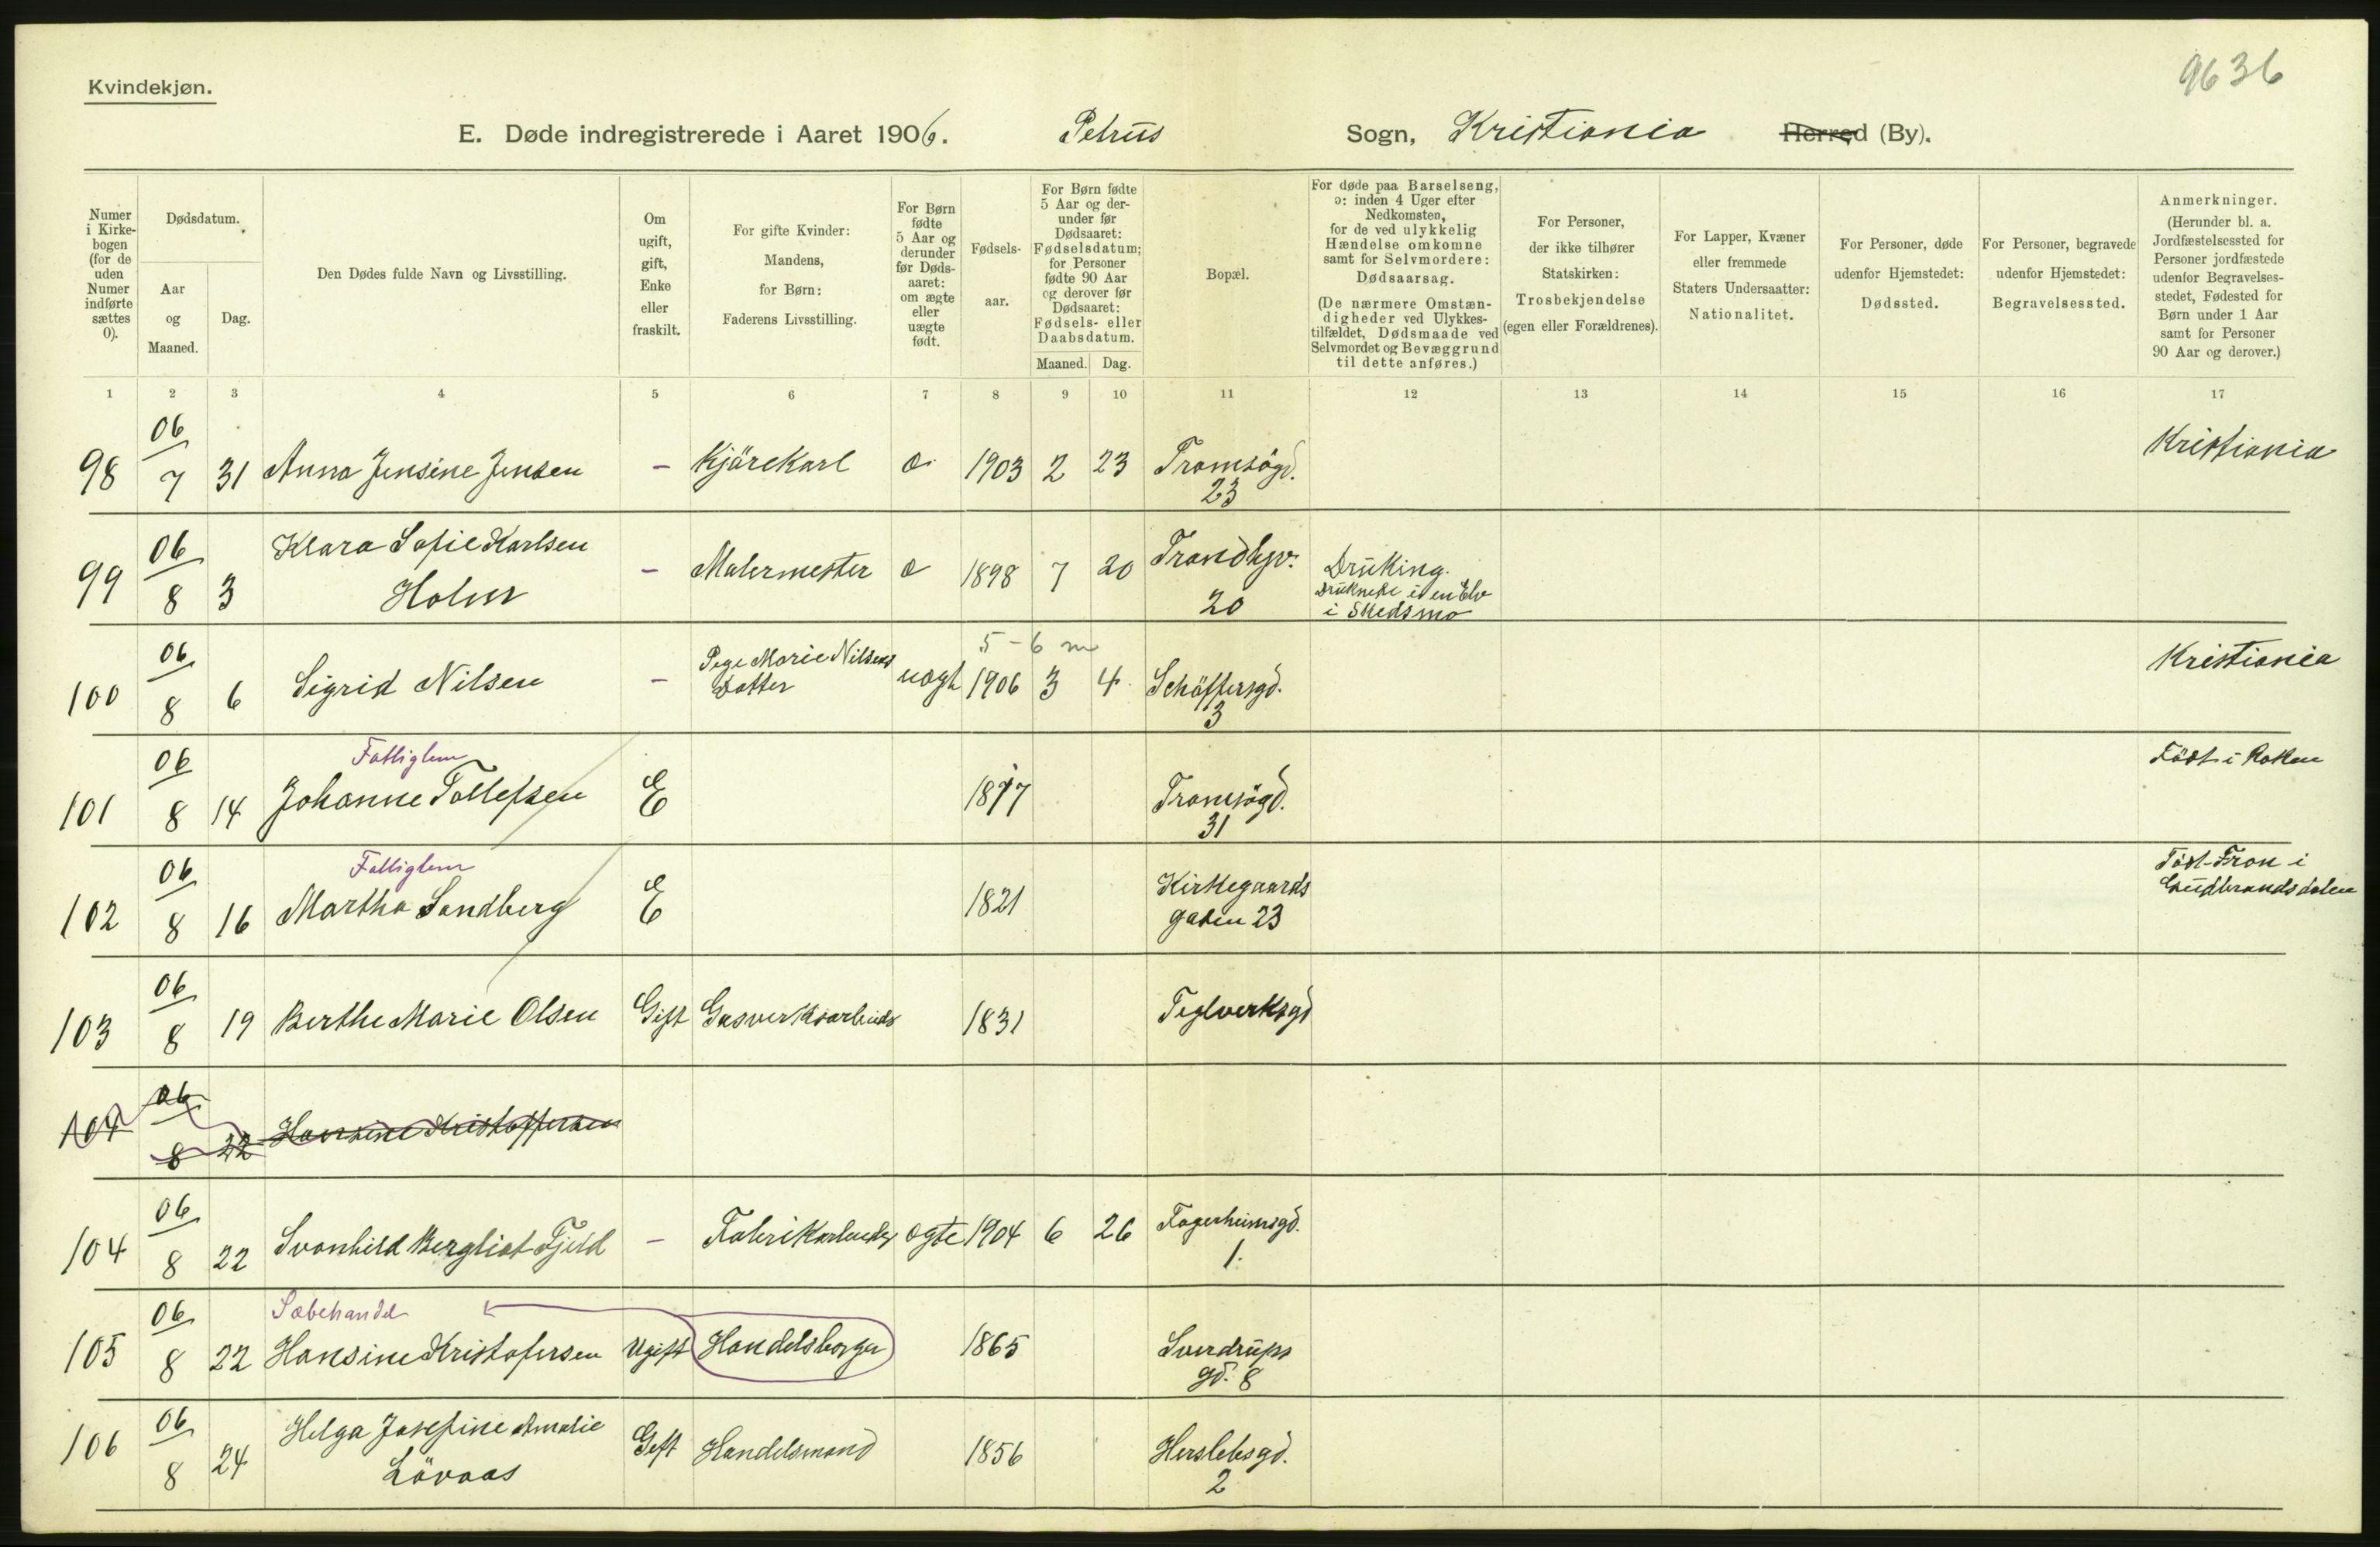 9636
Kvindekjøn.
E. Døde indregistrerede i Aaret 1906. Petrus Sogn, Kristiania Herred (By).
Numer i Kirkebogen (for de uden Numer indførte sættes 0).
Dødsdatum.
Aar og Maaned.
Dag.
Den Dødes fulde Navn og Livsstilling.
Om ugift, gift, Enke eller fraskilt.
For gifte Kvinder: Mandens, for Børn: Faderens Livsstilling.
For Børn fødte 5 Aar og derunder før Dødsaaret: om ægte eller uægte født.
Fødselsaar.
For Børn fødte 5 Aar og derunder før Dødsaaret: Fødselsdatum; for Personer fødte 90 Aar og derover før Dødsaaret: Fødsels- eller Daabsdatum.
Maaned. Dag.
Bopæl.
For døde paa Barselseng, ɔ: inden 4 Uger efter Nedkomsten, for de ved ulykkelig Hændelse omkomne samt for Selvmordere: Dødsaarsag.
(De nærmere Omstændigheder ved Ulykkestilfældet, Dødsmaade ved Selvmordet og Bevæggrund til dette anføres.)
For Personer, der ikke tilhører Statskirken: Trosbekjendelse (egen eller Forældrenes).
For Lapper, Kvæner eller fremmede Staters Undersaatter: Nationalitet.
For Personer, døde udenfor Hjemstedet: Dødssted.
For Personer, begravede udenfor Hjemstedet: Begravelsessted.
Anmerkninger. (Herunder bl. a. Jordfæstelsessted for Personer jordfæstede udenfor Begravelsesstedet, Fødested for Børn under 1 Aar samt for Personer 90 Aar og derover.)
1 2 3 4 5 6 7 8 9 10 11 12 13 14 15 16 17
98 06/7 31 Anna Jensine Jensen - Kjörekarl 1903 2 23 Tromsögd. 23 Kristiania
99 06/8 3 Klara Sofie Karlsen Holm - Malermester 1898 7 20 Trondhjv. 20 Drukning. Druknede i en Elv i Skedsmo
5-6 m
100 06/8 6 Sigrid Nilsen - Pige Marie Nilsens Datter uægt 1906 3 4 Schöffersgd. 3 Kristiania
Fattiglem
101 06/8 14 Johanne Tollefsen E 1817 Tromsögd. 31 Födt i Röken
Fattiglem
102 06/8 16 Martha Sandberg E 1821 Kirkegaards gaden 23 Födt Fron i Gudbrandsdalen
103 06/8 19 Berthe Marie Olsen Gift Gasverksarbeider 1831 Teglverksgd
104 06/8 22 Hansine Kristoffersen
104 06/8 22 Svanhild Bergliot Fjeld - Fabrikarbeider ægte 1904 6 26 Fagerheimsgd. 1.
Sæbehandel
105 06/8 22 Hansine Kristofersen Ugift Handelsborger 1865 Sverdrups gd. 8
106 06/8 24 Helga Josefine Amalie Lövaas Gift Handelsmand 1856 Herslebsgd. 2